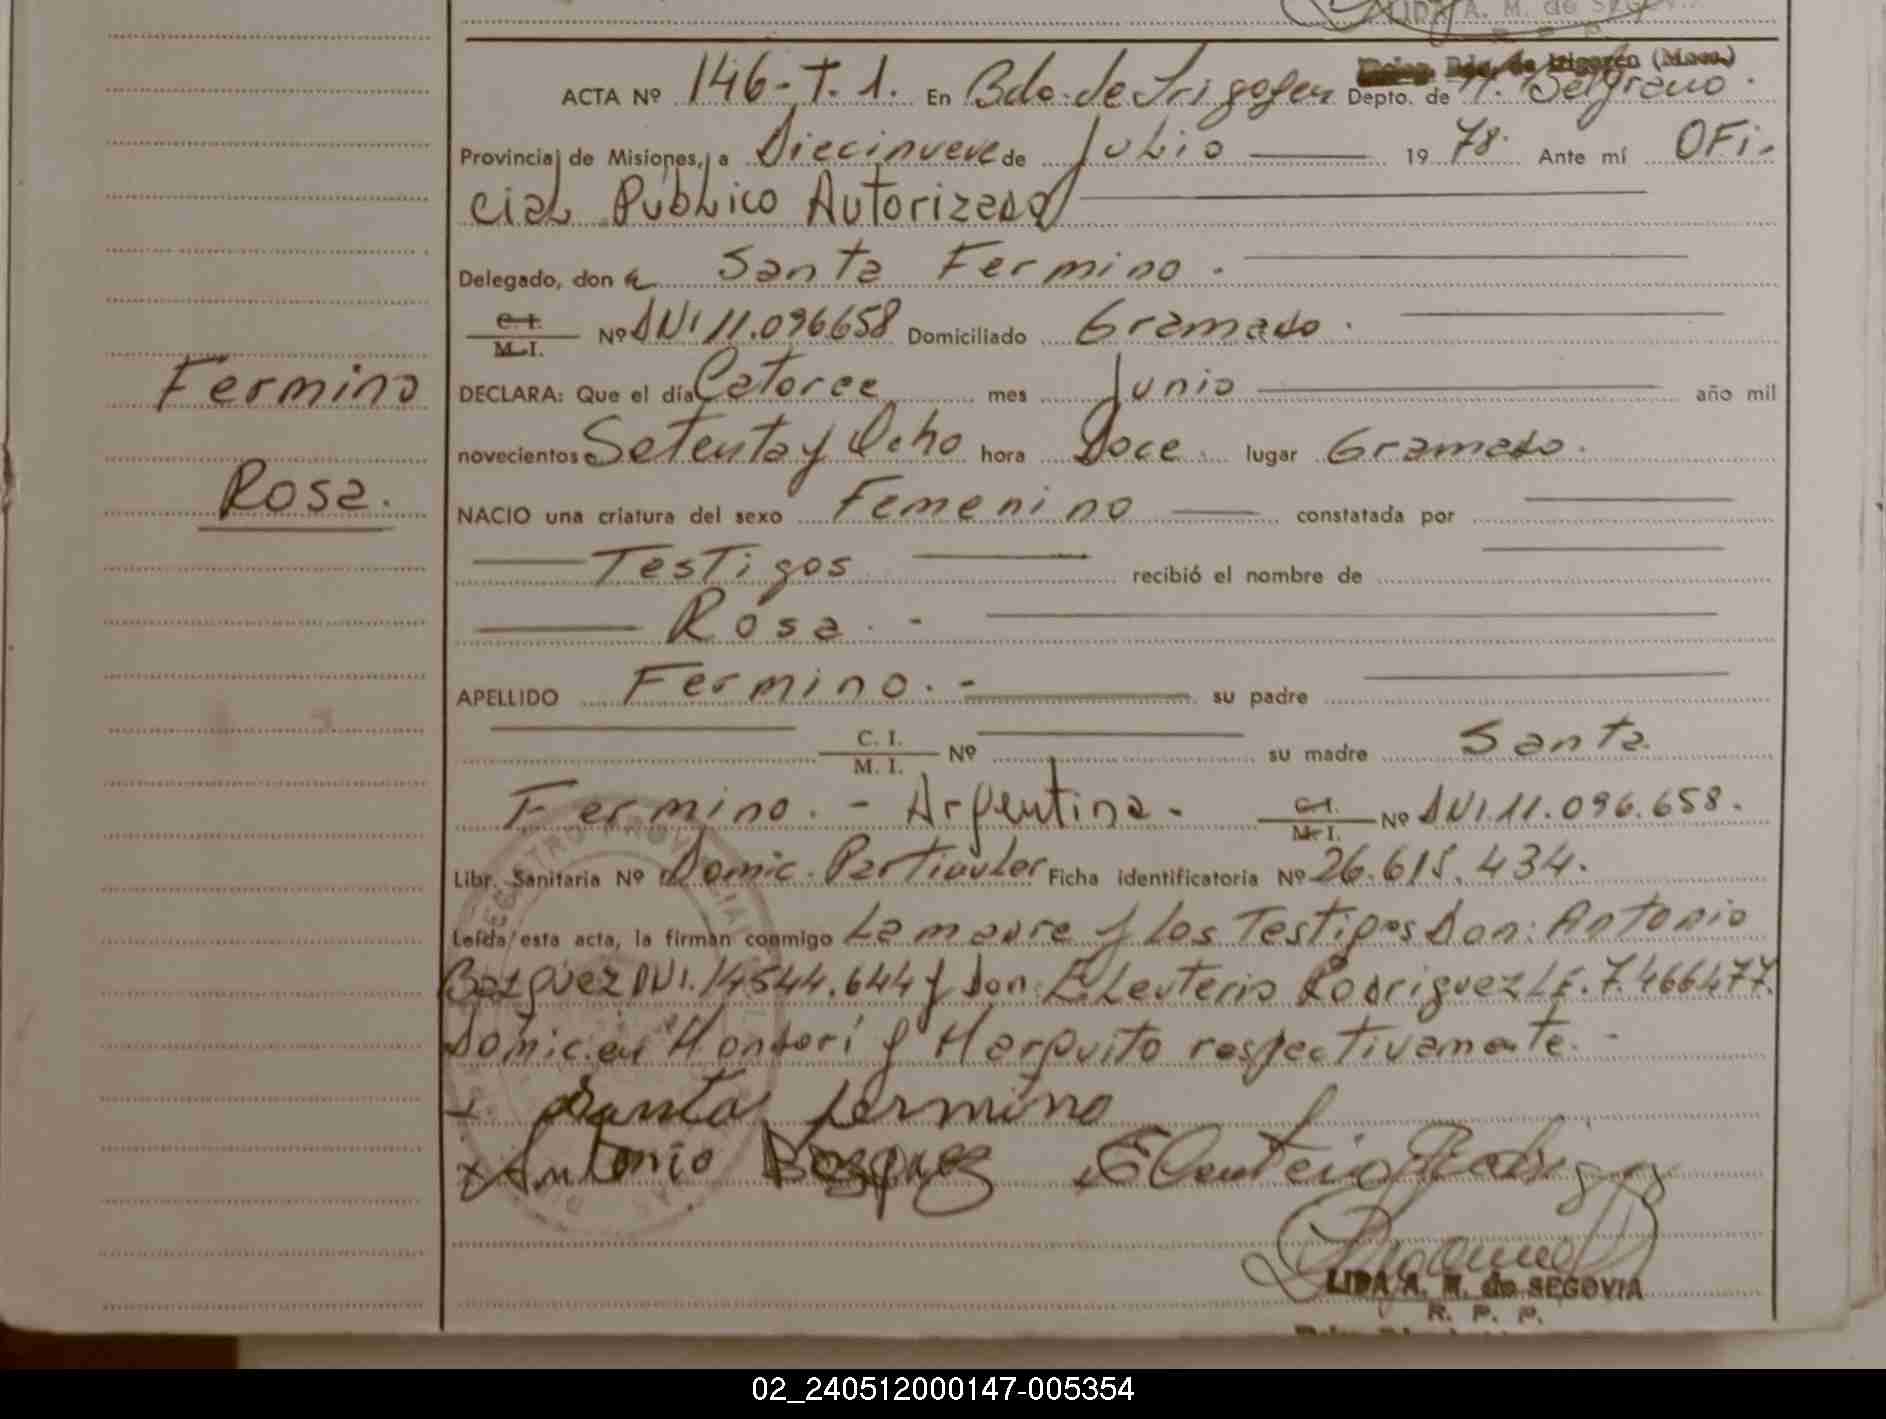 LIDA A. M. de SEGOVIA
ACTA Nº 146-T.1. En Bdo. de Irigoyen Depto. de M. Belgrano.
Provincia de Misiones, a Diecinueve de Julio 1978. Ante mí OFi-
cial Público Autorizado
Delegado, don a Santa Fermino.
C. I. M. I. Nº DNI 11.096658 Domiciliado Gramado.
DECLARA: Que el día Catorce mes Junio año mil
novecientos Setenta y Ocho hora Doce lugar Gramado.
NACIO una criatura del sexo Femenino constatada por
Testigos recibió el nombre de
Rosa. -
Fermino
Rosa.
APELLIDO Fermino. - su padre
C. I. M. I. Nº su madre Santa
Fermino. - Argentina - C. I. M. I. Nº DNI. 11.096.658.
Libr. Sanitaria Nº Domic. Particular Ficha identificatoria Nº 26.615.434.
Leída esta acta, la firman conmigo La madre y Los Testigos Don: Antonio
Bazquez DNI. 14544.644 y Don: Eleuterio Rodriguez LE. 7.466477.
Domic. en y respectivamente. -
Santa fermino
x Antonio Bozquez Eleuterio Rodriguez
LIDA A. M. de SEGOVIA
R. P. P.
02_240512000147-005354